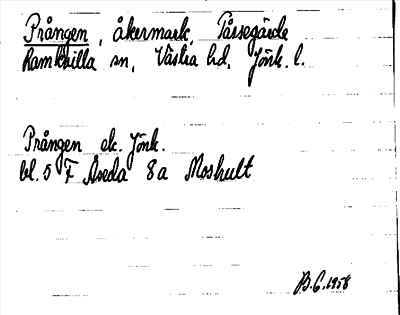 Prången, åkermark, Påssegärde
Ramkvilla sn, Västra hd, Jönk. l.
Prången ek. Jönk.
bl. 5 F Åseda 8a Moshult
B.G. 1958